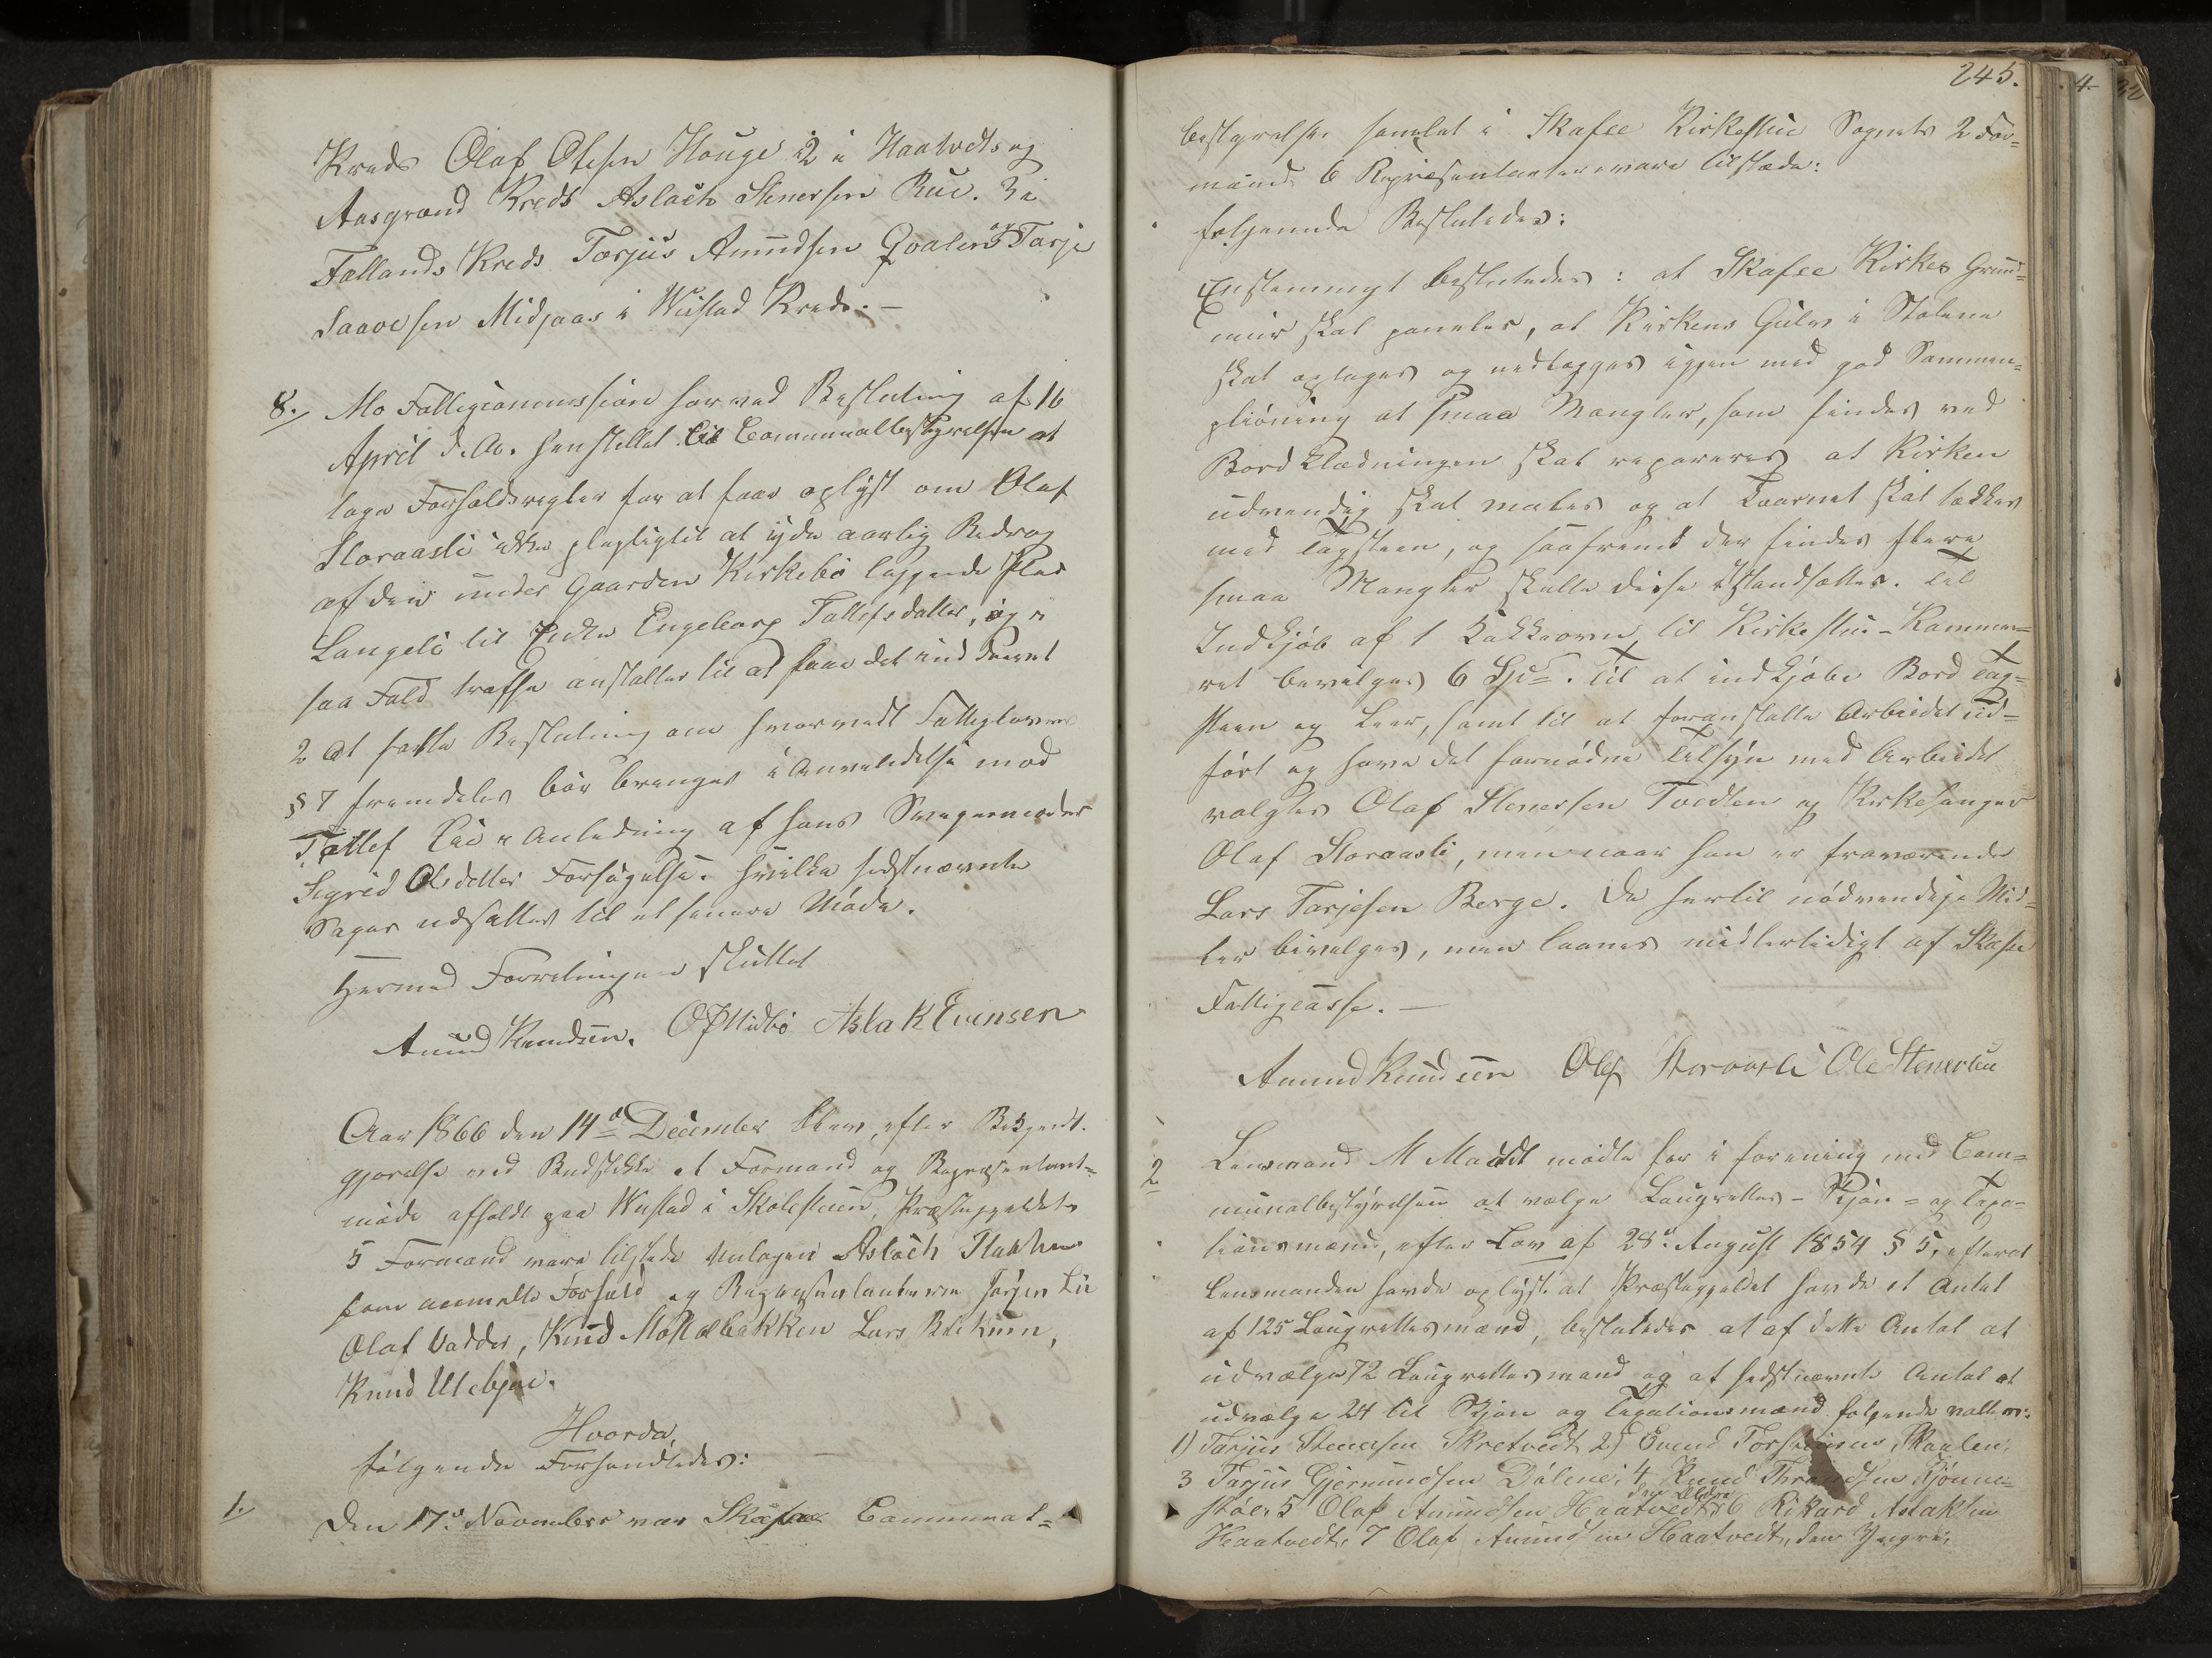 Kreds Olaf Olesen Houge 2 i Haatvedts og
Aasgrænd Kreds Aslach Stenersen Rue. 3 i
Fællands Kreds Torjus Amundsen Qvalen og Tarje
Saavesen Midjaas i Wistad Kreds. —
8. Mo Fattigcommission har ved Beslutning af 16
April d. A. henstillet til Communalbestyrelsen at
tage Forholdsregler for at faae oplyst om Olaf
Storaasli ikke pligtigtil at yde aarlig Bidrag
af den under Gaarden Kirkebö liggende Plads
Langeli til Enken Engeborg Tallefsdatter, og i
saa Fald træffe anstalter til at faae det inddrevet
2 At fatte Beslutning om hvorvidt Fattiglovens
§ 7 fremdeles bör bringes i Anvendelse mod
Tallef Lie i Anledning af hans Svigermoder
Sigrid Olsdatter Forsögelse. hvilke sidstnævnte
Sager udsattes til et senere Möde.
Hermed Forretningen sluttet
Amund Knudsen. O Midbö Aslak Evensen
Aar 1866 den 14de December blev, efter Bekjendt-
gjørelse ved Budstikke et Formand og Repræsentant-
møde afholdt paa Wistad i Skolestuen, Præstegjeldets
5 Formænd vare tilstede undtagen Aslach Flakken
som anmeldte Forfald og Repræsentanterne Jörgen Lie
Olaf Vadder, Knud Mostølbakken Lars Bækhuen,
Knud Utebjøe.
Hvorda,
følgende Forhandledes:
1. Den 17de November var Skafse Communal-
245.
bestyrelse samlet i Skafse Kirkestue Sognets 2 For-
mænd 6 Repræsentanter vare tilstæde:
følgende Besluttedes:
Enstemmigt besluttedes: at Skafse Kirkes Grund-
mur skal paneles, at Kirkens Gulv i Stolene
skal optages og nedlægges igjen med god Sammen-
pløining at smaa Mangler, som findes ved
Bordklædningen skal repareres at Kirken
udvendig skal males og at Taarnet skal tækkes
med Tagsteen, og saafremt der findes flere
smaa Mangler skulle disse istandsættes. Til
Indkjöb af 1 Kakkelovn til Kirkestue-Kamme-
ret bevilges 6 Spd. Til at indkjöbe Bord Tag-
steen og Leer, samt til at foranstalte Arbeidet ud-
ført og have det fornødne Tilsyn med Arbeidet
valgtes Olaf Stenersen Tvedten og Kirkesanger
Olaf Storaasli, men naar han er fraværende
Lars Tarjesen Berge. De hertil nödvendige Mid-
ler bevilges, men laanes midlertidigt af Skafse
Fattigcasse. —
Amund Knudsen Olaf Storaasli Ole Stenersen
2 Lensmand M Mandt mødte for i forening med Com-
munalbestyrelsen at vælge Laugrettes- Skjön- og Taxa-
tionsmænd, efter Lov af 28de August 1854 § 5, efterat
Lensmanden havde oplyst at Præstegjeldet havde et Antal
af 125 Laugrettesmænd, besluttedes at af dette Antal at
udvælge 72 Laugrettesmænd og af sidstnævnte Antal at
udvælge 24 til Skjön og Taxationsmænd følgende valtes:
1) Tarjus Stenersen Skretvedt, 2) Evend Torsteinsen Skaalen,
3 Torjus Gjermundsen Dölene, 4 Knud Throndsen Kjönne-
stöel 5 Olaf Amundsen Haatvedt den Eldre 6 Rikard Aslaksen
Haatvedt, 7 Olaf Amundsen Haatvedt, den Yngre,